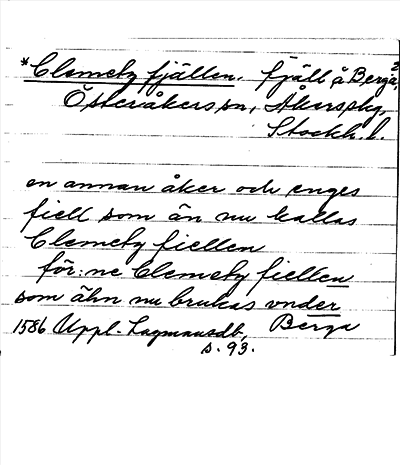 *Clemetzfjällen. fjäll å Berga,2
Österåkers sn, Åkers skg,
Stockh. l.
en annan åker och enges
fiell som än nu kallas
Clemetz fiellen
för:ne Clemetz fiellen
som ähn nu brukas vnder
Berga
1586 Uppl. Lagmansdb,
s. 93.